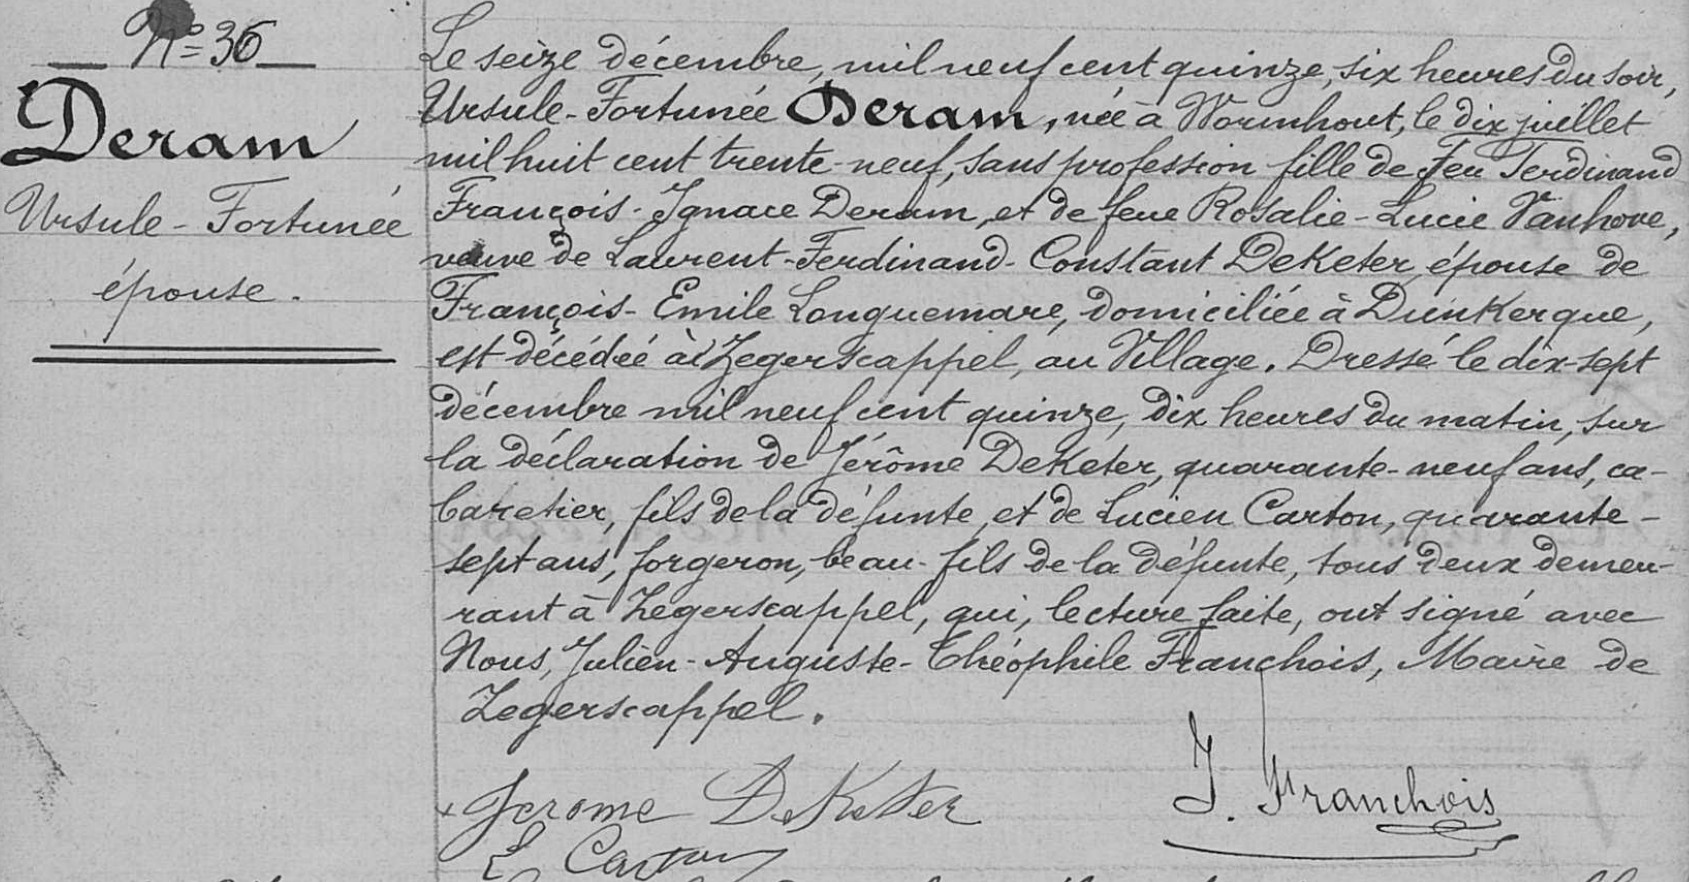 N° 36
Deram
Ursule-Fortunée
épouse.
Le seize décembre, mil neuf cent quinze, six heures du soir,
Ursule-Fortunée Deram, née à Wormhout, le dix juillet
mil huit cent trente-neuf, sans profession fille de feu Ferdinand
François-Ignace Deram, et de feue Rosalie-Lucie Vanhove,
veuve de Laurent-Ferdinand-Constant DeKeter, épouse de
François-Emile Longuemare, domiciliée à Dunkerque,
est décédée à Zegerscappel, au Village. Dressé le dix-sept
décembre mil neuf cent quinze, dix heures du matin, sur
la déclaration de Jérôme DeKeter, quarante-neuf ans, ca-
baretier, fils de la défunte, et de Lucien Carton, quarante-
sept ans, forgeron, beau-fils de la défunte, tous deux demeu-
rant à Zegerscappel, qui, lecture faite, ont signé avec
Nous, Julien-Auguste-Théophile Franchois, Maire de
Zegerscappel.
Jerome DeKeter
J. Franchois
L Carton